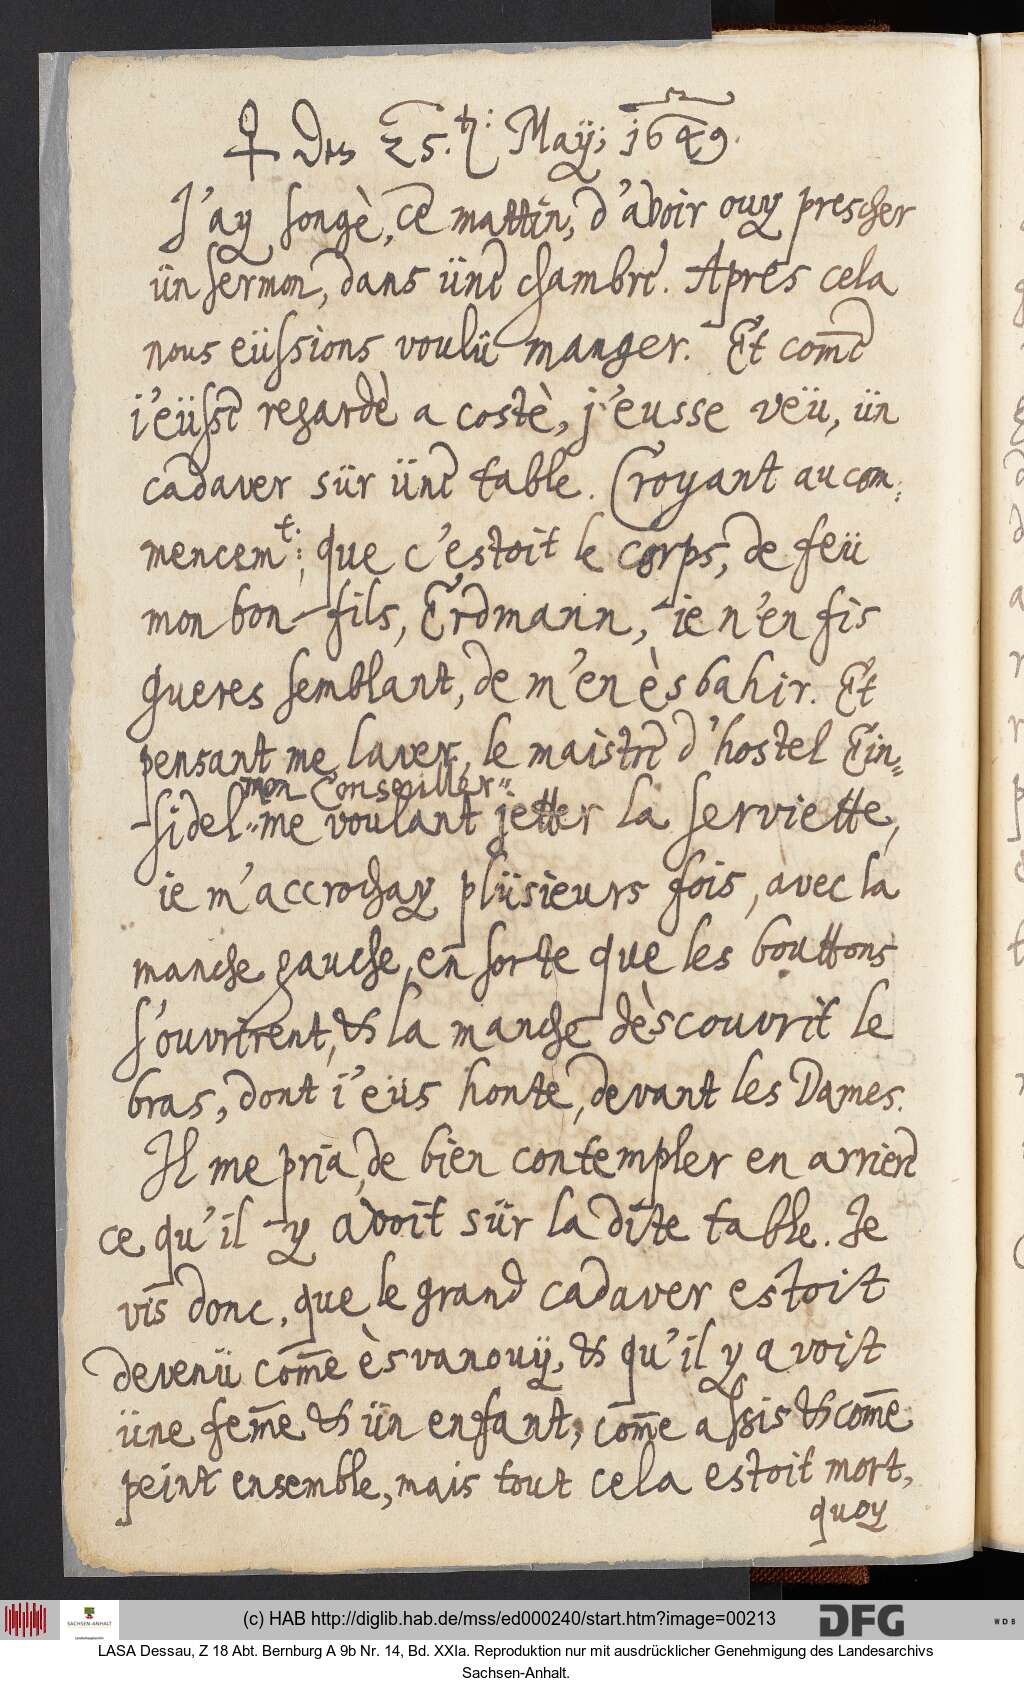 ♀ den 25. t: Maÿ; 1649.
J'ay songè, ce mattin, d'avoir ouy prescher
ün sermon, dans üne chambre. Apres cela
nous eüssions voulü manger. Et com̄e
i'eüsse regardè a costè, j'eusse veü, ün
cadaver sür üne table. Croyant au com¬
mencem.t: que c'estoit le corps, de feü
mon bon-fils, Erdmann, ie n'en fis
gueres semblant, de m'en èsbahir. Et
pensant me laver, le maistre d'hostel Ein¬
mon Conseiller"
sidel" me voulant jetter la serviette,
ie m'accrochay plüsieurs fois, avec la
manche gauche, en sorte que les bouttons
s'ouvrirent, & la manche dèscouvrit le
bras, dont i'eüs honte, devant les Dames.
Il me pria, de bien contempler en arriere
ce qu'il y avoit sür la dite table. Je
vis donc, que le grand cadaver estoit
devenü com̄e èsvanouÿ, & qu'il y avoit
üne fem̄e & ün enfant, com̄e assis & com̄e
peint ensemble, mais tout cela estoit mort,
quoy
(c) HAB http://diglib.hab.de/mss/ed000240/start.htm?image=00213
SACHSEN-ANHALT
DFG
WDB
LASA Dessau, Z 18 Abt. Bernburg A 9b Nr. 14, Bd. XXIa. Reproduktion nur mit ausdrücklicher Genehmigung des Landesarchivs
Sachsen-Anhalt.